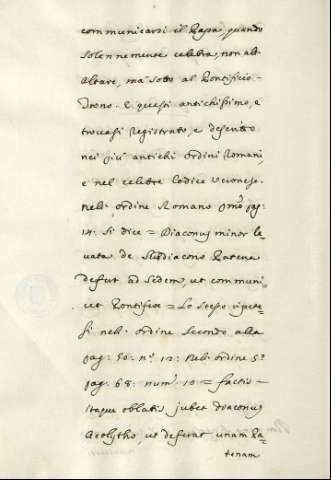 communicarsi il Papa, quando
solennemente celebra, non all'
Altare, ma sotto al Pontificio
Trono. E questi antichissimo, e
trovasi registrato, e descritto
nei più antichi Ordini Romani,
e nel celebre Codice Veronese.
nell' ordine Romano pmo pag:
14: si dice = Diaconus minor le
vata de Subdiacono Patena
defert ad Sedem, ut communi
cet Pontifex = Lo stesso ripete
si nell' ordine Secondo alla
pag: 50: nº 12: Nell' ordine 5º
pag: 68: num: 10 = factis
itaque oblatis jubet diaconus
Acolytho, ut deferat unam Pa
tenam